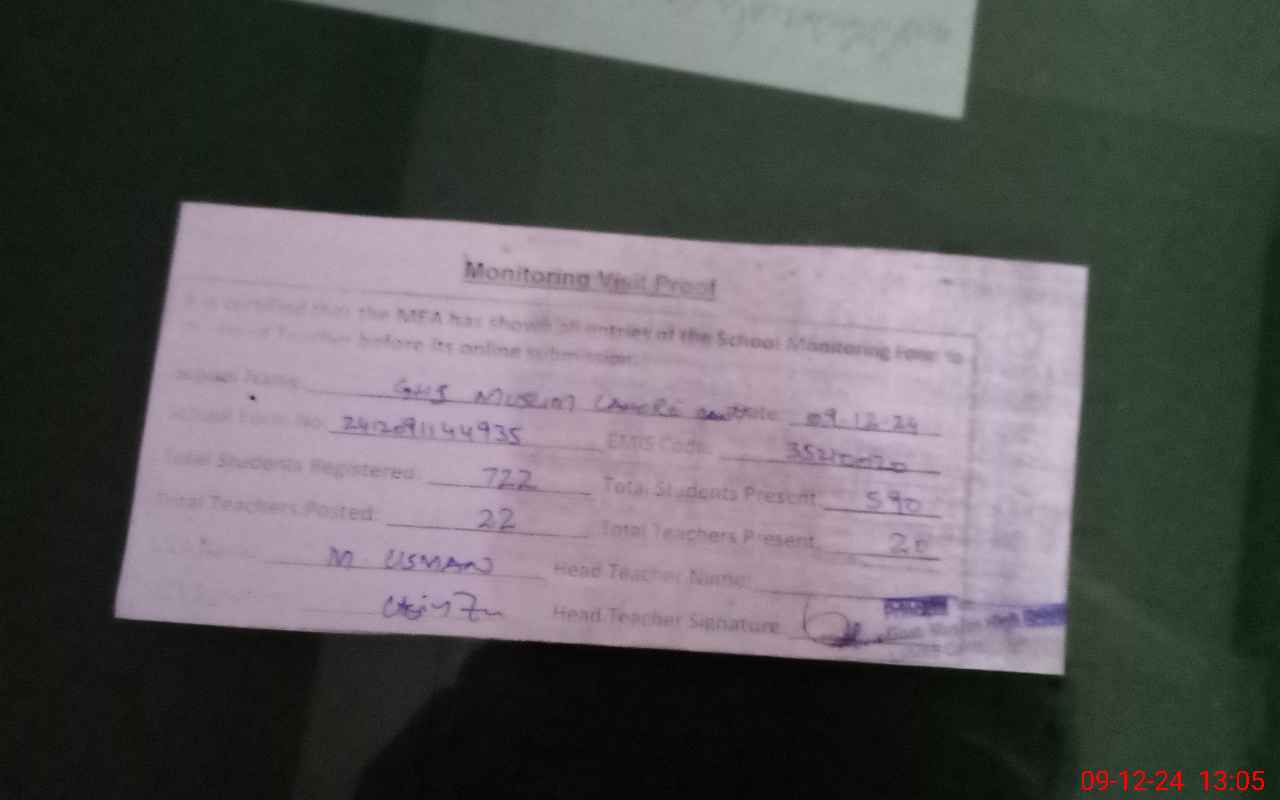 Monitoring Visit Proof
is certified that the MEA has shown all entries of the School Monitoring Form to
Head Teacher before its online submission.
School Name GHS MUSLIM LAHORE Cantt Date 09.12.24
School Form No. 241209144935 EMIS Code
Total Students Registered: 722 Total Students Present 590
Total Teachers Posted: 22 Total Teachers Present 20
M USMAN Head Teacher Name:
Head Teacher Signature
High
09-12-24 13:05